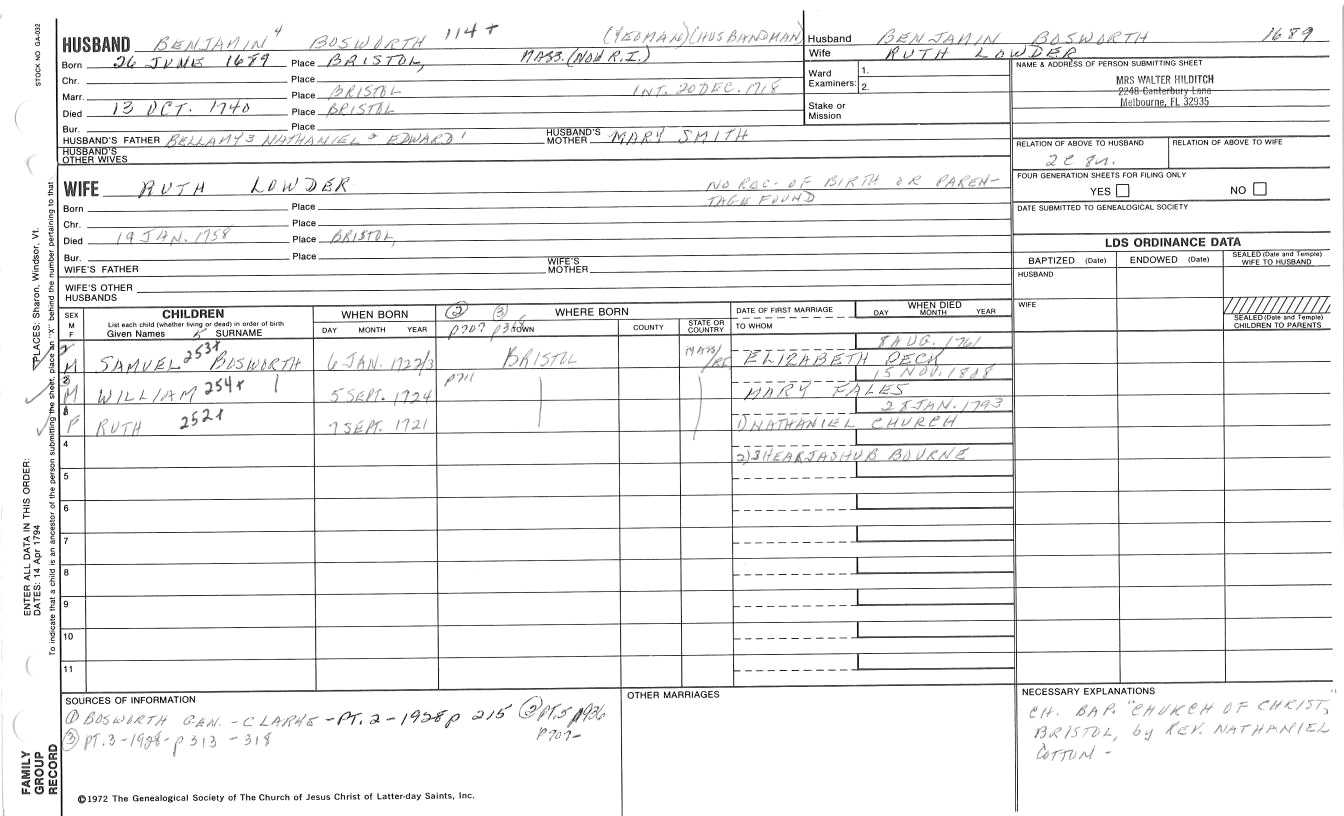 STOCK NO GA-032
HUSBAND BENJAMIN 4 BOSWORTH 114+ (YEOMAN)(HUSBANDMAN)
Born 26 JUNE 1689 Place BRISTOL, MASS. (NOW R.I.)
Chr. Place
Marr. Place BRISTOL INT. 20 DEC. 1718
Died 13 OCT. 1740 Place BRISTOL
Bur. Place
HUSBAND'S FATHER BELLAMY 3 NATHANIEL 2 EDWARD 1 HUSBAND'S MOTHER MARY SMITH
HUSBAND'S OTHER WIVES
Husband BENJAMIN BOSWORTH 1689
Wife RUTH LOWDER
Ward Examiners: 1.
2.
Stake or Mission
NAME & ADDRESS OF PERSON SUBMITTING SHEET
MRS WALTER HILDITCH
2248 Canterbury Lane
Melbourne, FL 32935
RELATION OF ABOVE TO HUSBAND RELATION OF ABOVE TO WIFE
2C 8n.
FOUR GENERATION SHEETS FOR FILING ONLY
YES NO
DATE SUBMITTED TO GENEALOGICAL SOCIETY
WIFE RUTH LOWDER NO REC. OF BIRTH OR PAREN-
TAGE FOUND
Born Place
Chr. Place
Died 19 JAN. 1758 Place BRISTOL,
Bur. Place
WIFE'S FATHER WIFE'S MOTHER
WIFE'S OTHER HUSBANDS
LDS ORDINANCE DATA
BAPTIZED (Date) ENDOWED (Date) SEALED (Date and Temple) WIFE TO HUSBAND
HUSBAND
WIFE
SEALED (Date and Temple) CHILDREN TO PARENTS
SEX M F
CHILDREN
List each child (whether living or dead) in order of birth
Given Names SURNAME
WHEN BORN
DAY MONTH YEAR
② ③ WHERE BORN
p707 TOWN COUNTY STATE OR COUNTRY
DATE OF FIRST MARRIAGE
TO WHOM
WHEN DIED
DAY MONTH YEAR
2 M SAMUEL 253+ BOSWORTH 6 JAN. 1722/3 BRISTOL ELIZABETH PECK 8 AUG. 1761
3 M WILLIAM 254+ 5 SEPT. 1724 p711 MARY FALES 15 NOV. 1808
1 F RUTH 252+ 7 SEPT. 1721 1) NATHANIEL CHURCH 28 JAN. 1793
4 2) SHEARJASHUB BOURNE
5
6
7
8
9
10
11
SOURCES OF INFORMATION
① BOSWORTH GEN. - CLARKE - PT. 2 - 1928 p 215 ② PT. 5 p936
p707-
③ PT. 3 - 1928 - p 313 - 318
OTHER MARRIAGES
NECESSARY EXPLANATIONS
CH. BAP. "CHURCH OF CHRIST,"
BRISTOL, by REV. NATHANIEL
COTTON -
©1972 The Genealogical Society of The Church of Jesus Christ of Latter-day Saints, Inc.
PLACES: Sharon, Windsor, Vt.
ENTER ALL DATA IN THIS ORDER:
DATES: 14 Apr 1794
To indicate that a child is an ancestor of the person submitting the sheet, place an "X" behind the number pertaining to that
FAMILY GROUP RECORD